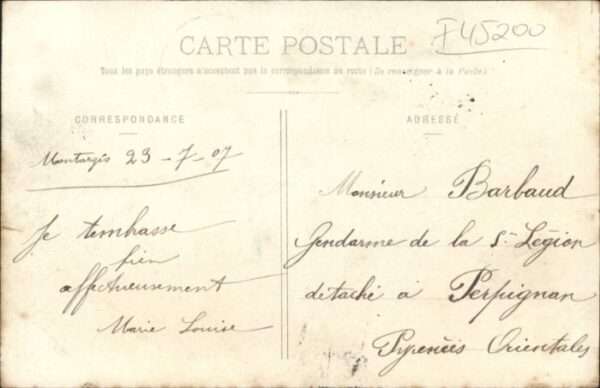 F45200
CARTE POSTALE
Tous les pays étrangers n'acceptent pas la correspondance au recto (Se renseigner à la Poste)
CORRESPONDANCE
ADRESSE
Montargis 23-7-07
Je t'embrasse
bien
affectueusement
Marie Louise
Monsieur Barbaud
Gendarme de la 5e Légion
détaché à Perpignan
Pyrenées Orientales